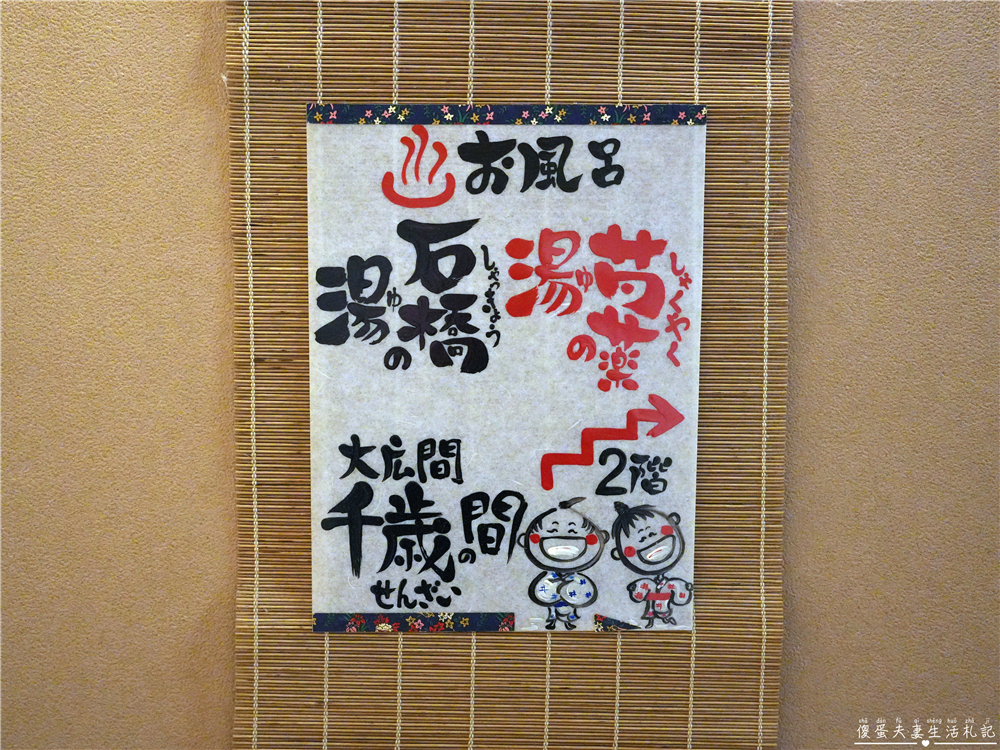 ♨お風呂
芍薬の湯
しゃくやく
ゆ
石橋の湯
しゃっきょう
ゆ
2階
大広間
千歳の間
せんざい
shǎ dàn fū qī shēng huó zhá jì
傻蛋夫妻生活札記